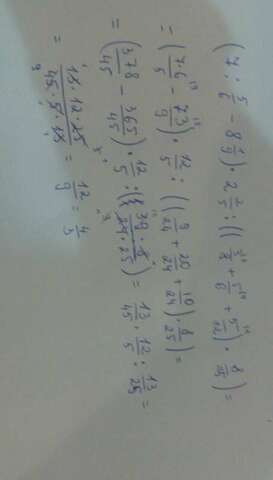 (7 : 5/6 - 8 1/9) · 2 2/5 : ((3/8 + 5/6 + 5/12) · 8/25) =
= (7·6/5 - 73/9) · 12/5 : ((9/24 + 20/24 + 10/24) · 8/25) =
= (378/45 - 365/45) · 12/5 : (39·8/24·25) = 13/45 · 12/5 : 13/25 =
= 13·12·25/45·5·13 = 12/9 = 4/3